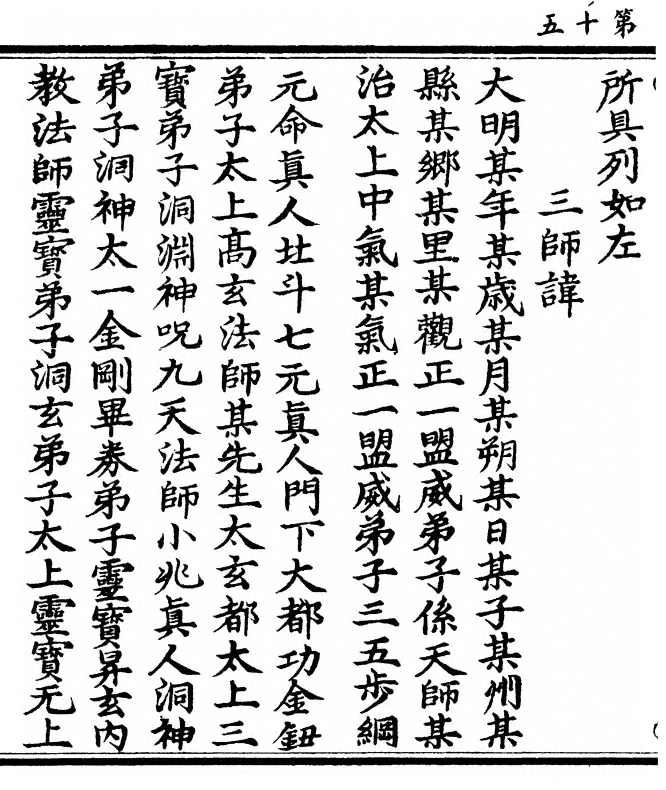 第十五
所具列如左
三師諱
大明某年某歳某月某朔某日某子某州某
縣某郷某里某觀正一盟威弟子係天師某
治太上中氣某氣正一盟威弟子三五歩綱
元命眞人北斗七元眞人門下大都功金鈕
弟子太上髙玄法師某先生太玄都太上三
寶弟子洞淵神呪九天法師小兆眞人洞神
弟子洞神太一金剛畢券弟子靈寶昇玄内
教法師靈寶弟子洞玄弟子太上靈寶无上